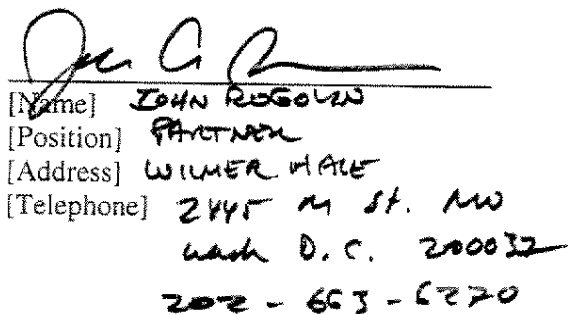 [Name] JOHN ROGOVIN
[Position] PARTNER
[Address] WILMER HALE
[Telephone] 2445 M St. NW
Wash D.C. 200037
202-663-6270